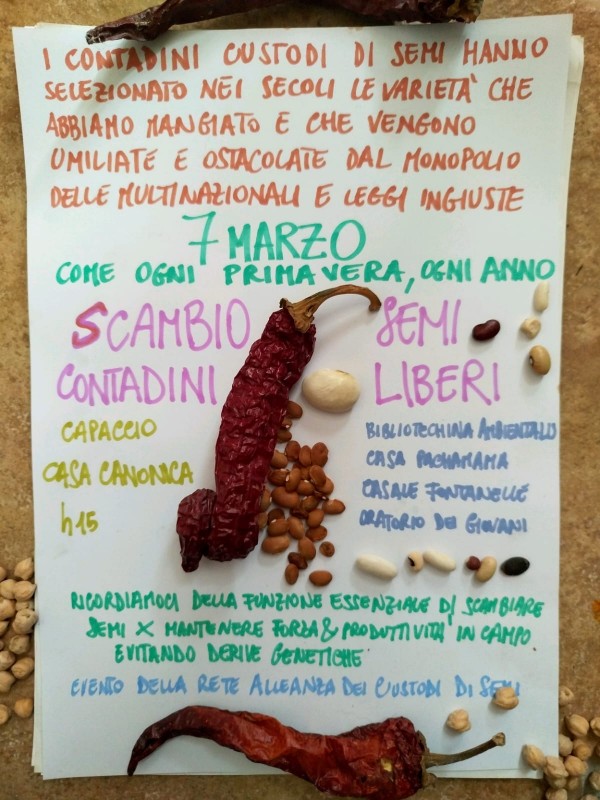 I CONTADINI CUSTODI DI SEMI HANNO
SELEZIONATO NEI SECOLI LE VARIETÀ CHE
ABBIAMO MANGIATO E CHE VENGONO
UMILIATE E OSTACOLATE DAL MONOPOLIO
DELLE MULTINAZIONALI E LEGGI INGIUSTE
7 MARZO
COME OGNI PRIMAVERA, OGNI ANNO
SCAMBIO SEMI
CONTADINI LIBERI
CAPACCIO
CASA CANONICA
h 15
BIBLIOTECHINA
CASA PACHAMAMA
CASALE FONTANELLE
ORATORIO DEI GIOVANI
RICORDIAMOCI DELLA FUNZIONE ESSENZIALE DI SCAMBIARE
SEMI X MANTENERE FORZA & PRODUTTIVITÀ IN CAMPO
EVITANDO DERIVE GENETICHE
EVENTO DELLA RETE ALLEANZA DEI CUSTODI DI SEMI